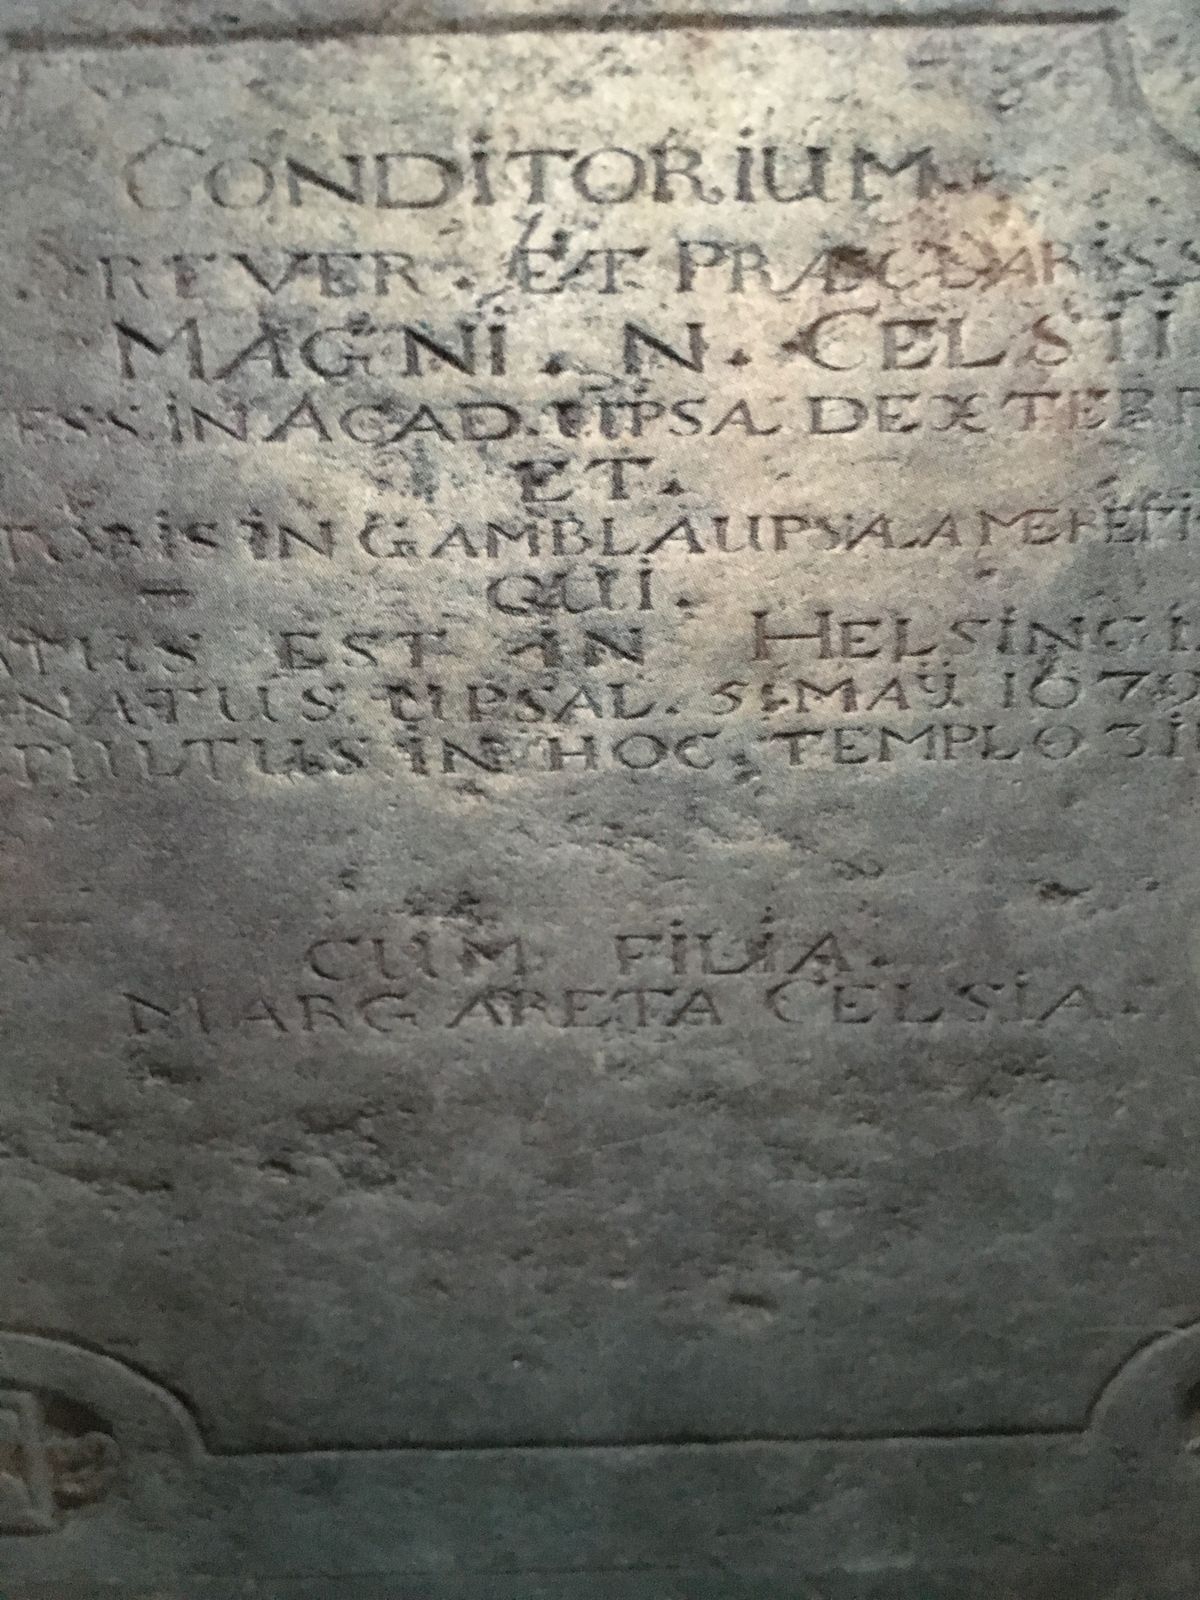 CONDITORIUM
REVER. ET PRÆCLARISS
MAGNI. N. CELSII
ESS. IN ACAD. UPSA. DEXTERR
ET.
TORIS IN GAMBLAUPSALA MERETI
QUI.
ATUS EST IN HELSINGL
NATUS UPSAL. 5. MAŸ. 1679
PULTUS IN HOC TEMPLO 3 IU
CUM FILIA.
MARGARETA CELSIA.